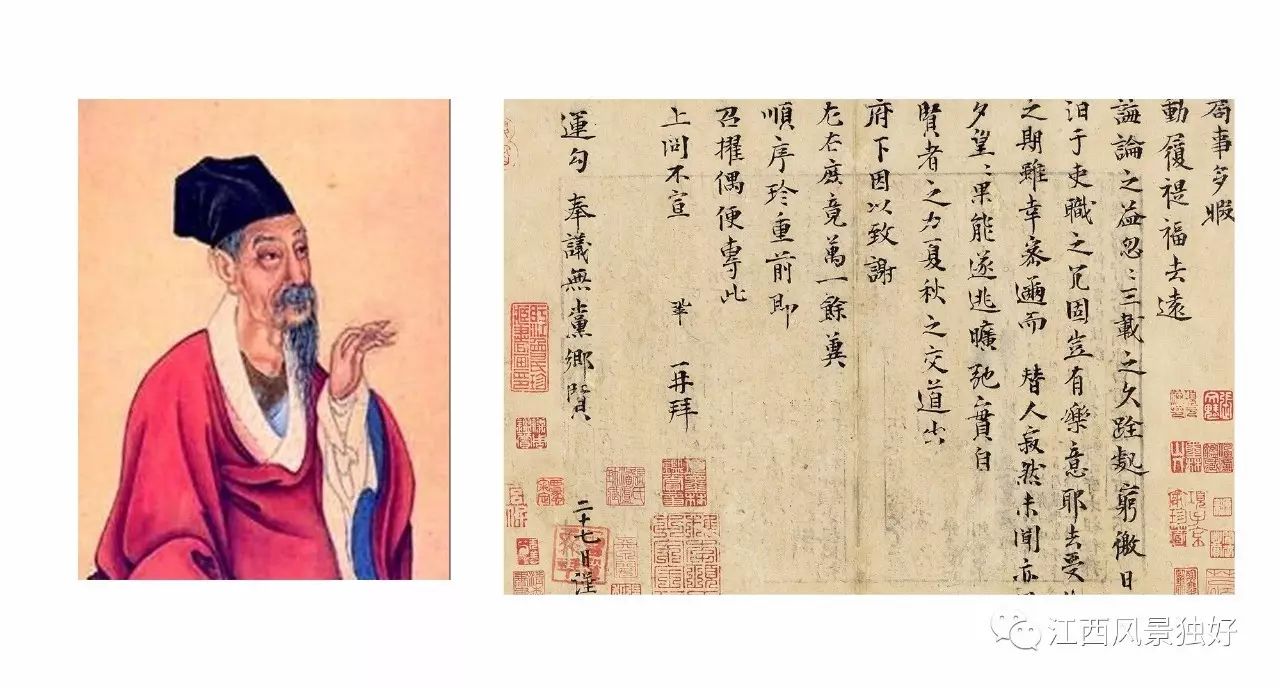 局事多暇
動履禔福去遠
誨論之益忽〻三載之久跧處窮徼日
汨于吏職之冗固豈有樂意耶去受
之期雖幸密邇而 替人寂然未聞亦
夕望〻果能遂逃曠弛實自
賢者之力夏秋之交道出
府下因以致謝
左右庶竟萬一餘冀
順序珍重前即
召擢偶便專此
上問不宣 鞏 再拜
運勾 奉議無黨鄉賢 二十七日謹
江西风景独好